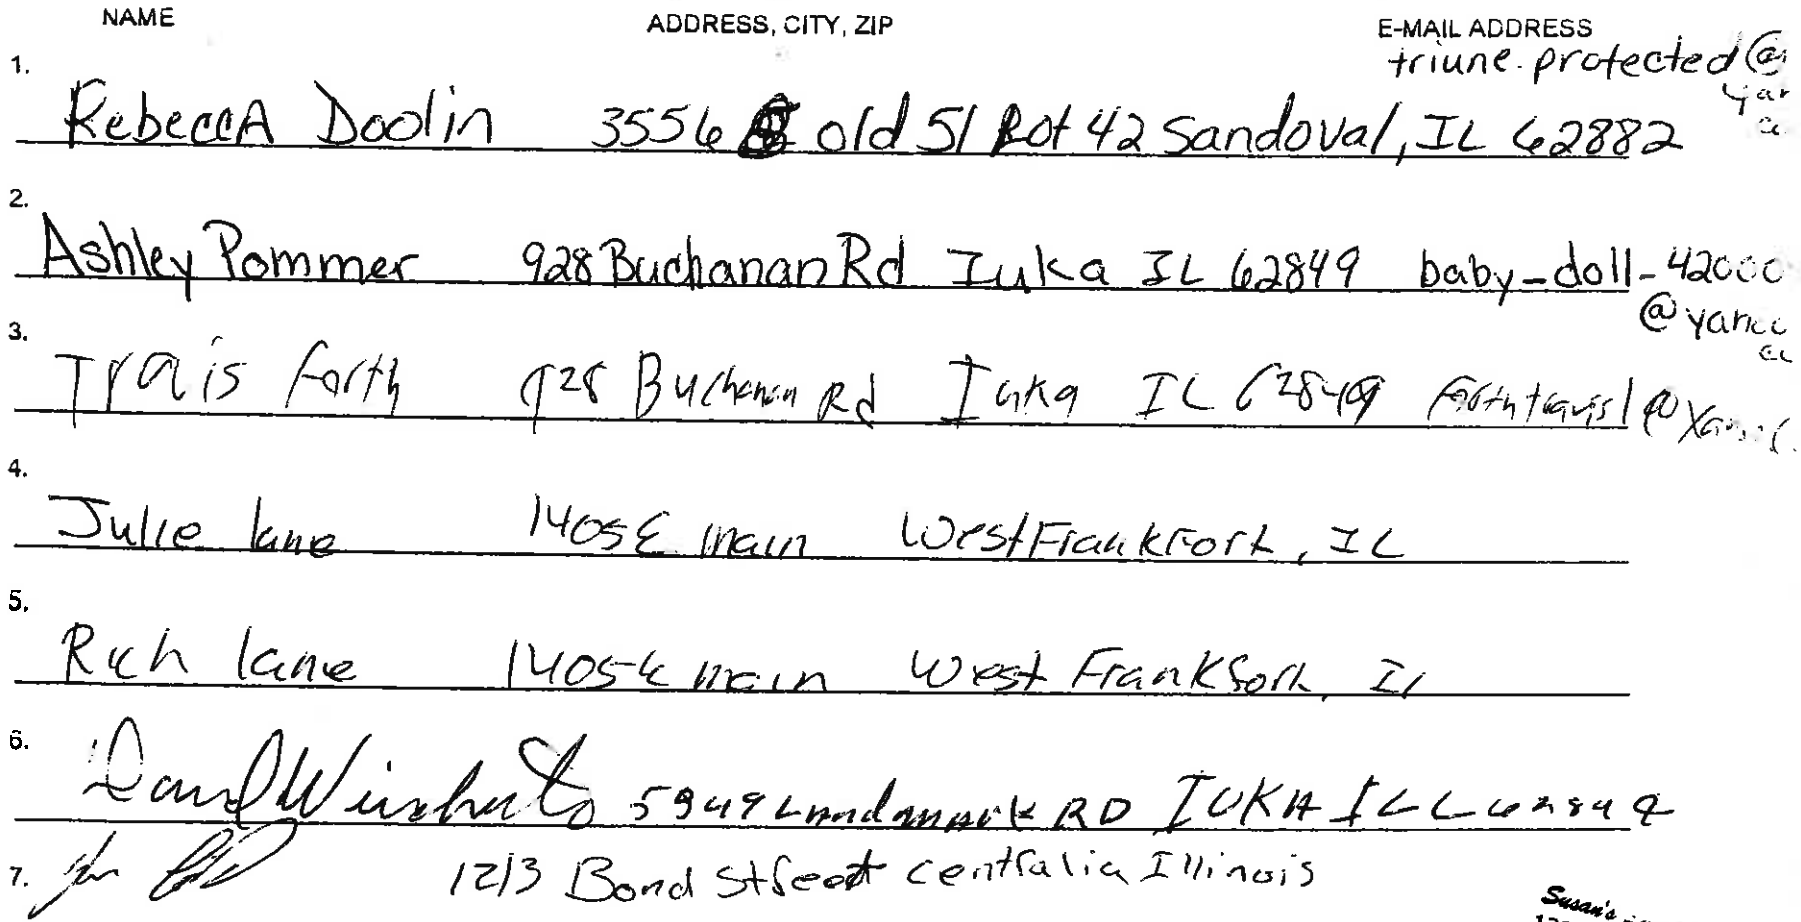 NAME ADDRESS, CITY, ZIP E-MAIL ADDRESS
triune.protected@
1.
RebeccA Doolin 3556 old 51 Lot 42 Sandoval, IL 62882
2.
Ashley Pommer 928 Buchanan Rd Iuka IL 62849 baby_doll_42000
@yahoo
3.
Travis Forth 928 Buchanan Rd Iuka IL 62849
4.
Julie lane 1405 E main West Frankfort, IL
5.
Rich lane 1405 E main West Frankfort, Il
6.
5949 Landmark RD IUKA ILL 62849
7. 1213 Bond Street centralia Illinois
Susan's